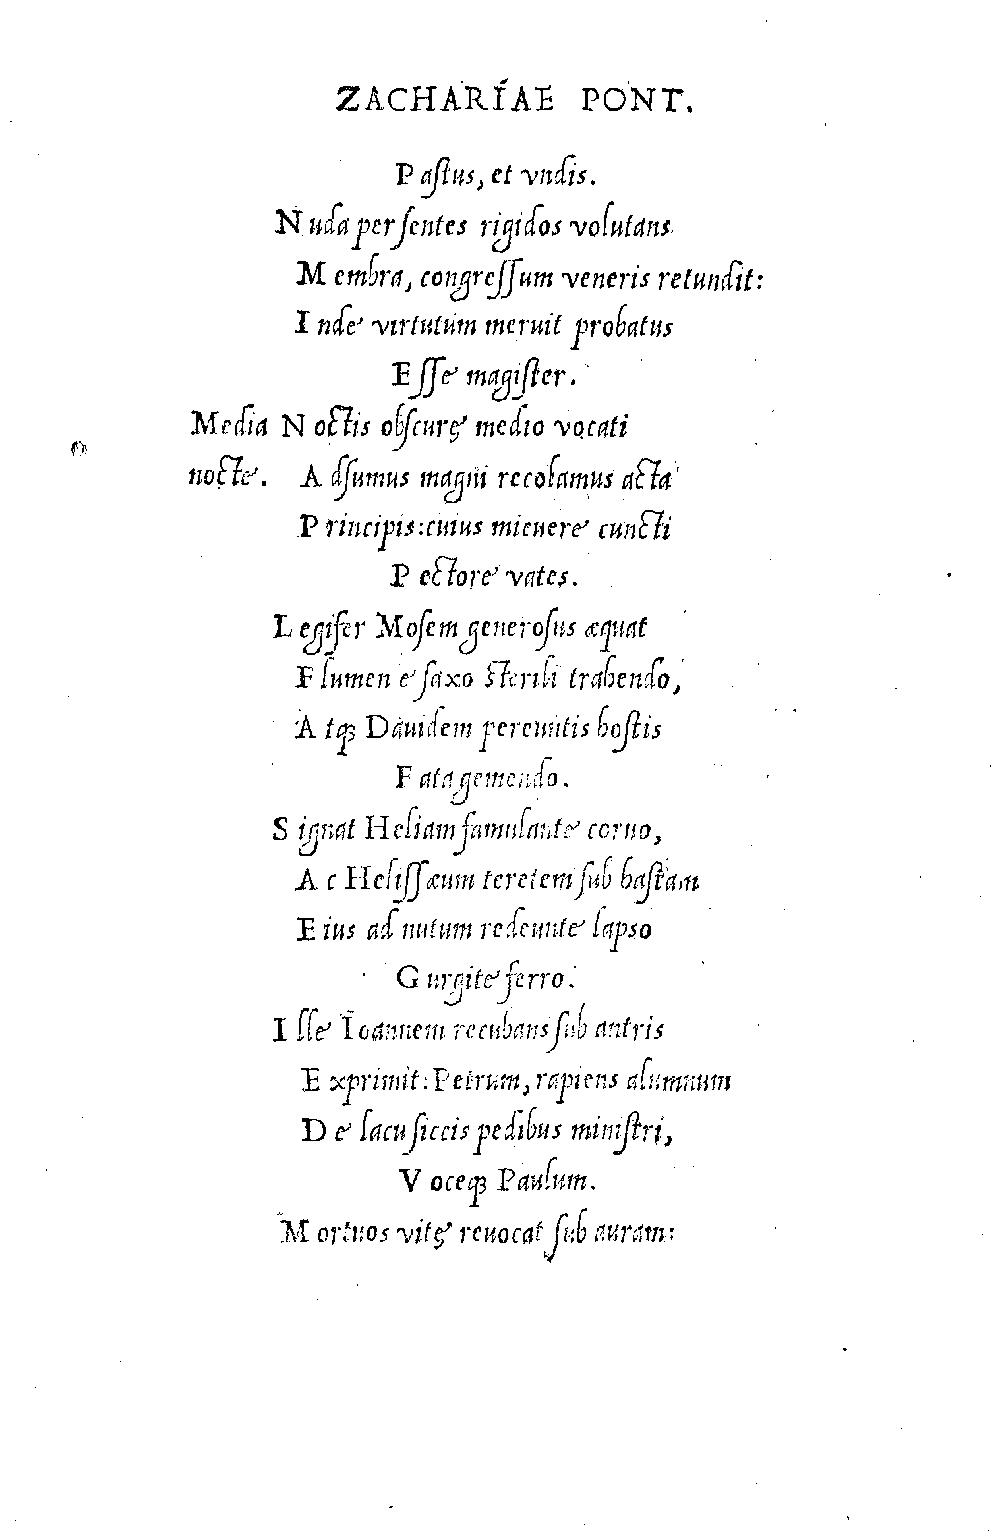 ZACHARÍAE PONT.
Paſtus, et vndis.
Nuda per ſentes rigidos volutans
Membra, congreſſum veneris retundit:
Inde virtutum meruit probatus
Eſſe magiſter.
Media Noctis obſcurę medio vocati
nocte. Adſumus magni recolamus acta
Principis: cuius micuere cuncti
Pectore vates.
Legifer Moſem generoſus æquat
Flumen e ſaxo ſterili trahendo,
Atqꝫ Dauidem pereuntis hoſtis
Fata gemendo.
Signat Heliam famulante coruo,
Ac Heliſſæum teretem ſub haſtam
Eius ad nutum redeunte lapso
Gurgite ferro.
Ille Ioannem recubans ſub antris
Exprimit: Petrum, rapiens alumnum
De lacu ſiccis pedibus miniſtri,
Voceqꝫ Paulum.
Mortuos vitę reuocat ſub auram: